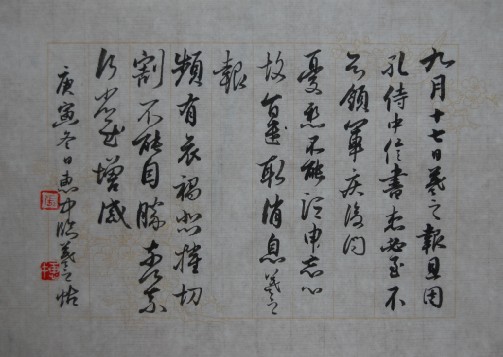 九月十七日羲之報且因
孔侍中信書想必至不
知領軍疾後問
憂懸不能須臾忘心
故旨遣取消息羲之
報
頻有哀禍悲摧切
割不能自勝奈何奈
何省慰增感
庚寅冬日惠中臨羲之帖